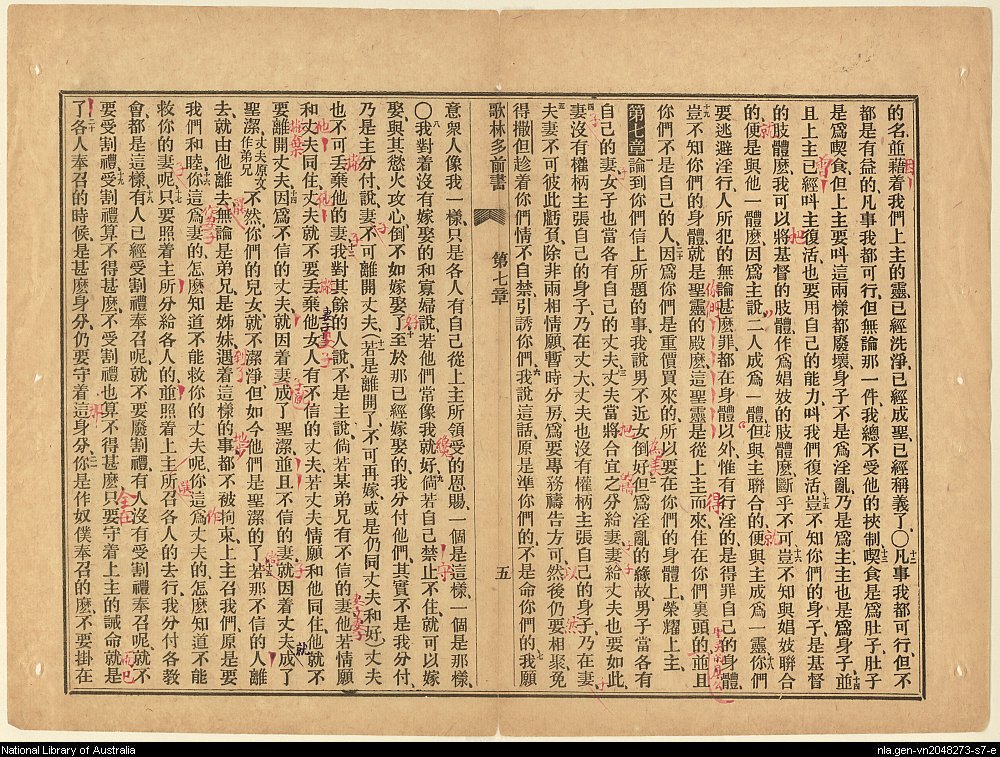 的名並藉着我們上主的靈已經洗淨、已經成聖、已經稱義了、〇十二凡事我都可行、但不
都是有益的、凡事我都可行、但無論那一件、我總不受他的挾制、十三喫食是爲肚子、肚子
是爲喫食、但上主要叫這兩樣都廢壞、身子不是爲淫亂、乃是爲主、主也是爲身子、十四並
且上主已經叫主復活、也要用自己的能力、叫我們復活、十五豈不知你們的身子、是基督
的肢體麽、我可以將基督的肢體、作爲娼妓的肢體麽、斷乎不可、十六豈不知與娼妓聯合
的、便是與他一體麽、因爲主說、二人成爲一體、十七但與主聯合的、便與主成爲一靈、你們
要逃避淫行、人所犯的、無論甚麽罪、都在身體以外、惟有行淫的、是得罪自己的身體、
十九豈不知你們的身體、就是聖靈的殿麽、這聖靈是從上主而來、住在你們裏頭的、並且
你們不是自己的人、二十因爲你們是重價買來的、所以要在你們的身體上、榮耀上主、
第七章一論到你們信上所題的事、我說男不近女倒好、二但爲淫亂的緣故、男子當各有
自己的妻、女子也當各有自己的丈夫、三丈夫當將合宜之分給妻、妻給丈夫也要如此、
四妻沒有權柄主張自己的身子、乃在丈夫、丈夫也沒有權柄主張自己的身子、乃在妻、
五夫妻不可彼此虧負、除非兩相情願、暫時分房、爲要專務禱告方可、然後仍要相聚、免
得撒但趁着你們情不自禁、引誘你們、六我說這話、原是準你們的、不是命你們的、七我願
歌林多前書　第七章　五
意衆人像我一樣、只是各人有自己從上主所領受的恩賜、一個是這樣、一個是那樣、
〇八我對着沒有嫁娶的和寡婦說、若他們常像我就好、九倘若自己禁止不住、就可以嫁
娶、與其慾火攻心、倒不如嫁娶了、十至於那已經嫁娶的、我分付他們、其實不是我分付、
乃是主分付、說、妻不可離開丈夫、十一（若是離開了、不可再嫁、或是仍同丈夫和好、）丈夫
也不可丟棄他的妻、十二我對其餘的人說、不是主說、倘若某弟兄有不信的妻、他若情願
和丈夫同住、丈夫就不要丟棄他、十三女人有不信的丈夫、若丈夫情願和他同住、他就不
要離開丈夫、十四因爲不信的丈夫、就因着妻成了聖潔、並且不信的妻、就因着丈夫成了
聖潔、丈夫原文作弟兄不然你們的兒女就不潔淨、但如今他們是聖潔的了、十五若那不信的人離
去、就由他離去、無論是弟兄是姊妹、遇着這樣的事、都不被拘束、上主召我們、原是要
我們和睦、十六你這爲妻的、怎麽知道不能救你的丈夫呢、你這爲丈夫的、怎麽知道不能
救你的妻呢、十七只要照着主所分給各人的、並照着上主所召各人的去行、我分付各敎
會、都是這樣、十八有人已經受割禮奉召呢、就不要廢割禮、有人沒有受割禮奉召呢、就不
要受割禮、十九受割禮算不得甚麽、不受割禮也算不得甚麽、只要守着上主的誡命就是
了、二十各人奉召的時候是甚麽身分、仍要守着這身分、二一你是作奴僕奉召的麽、不要掛在
National Library of Australia
nla.gen-vn2048273-s7-e